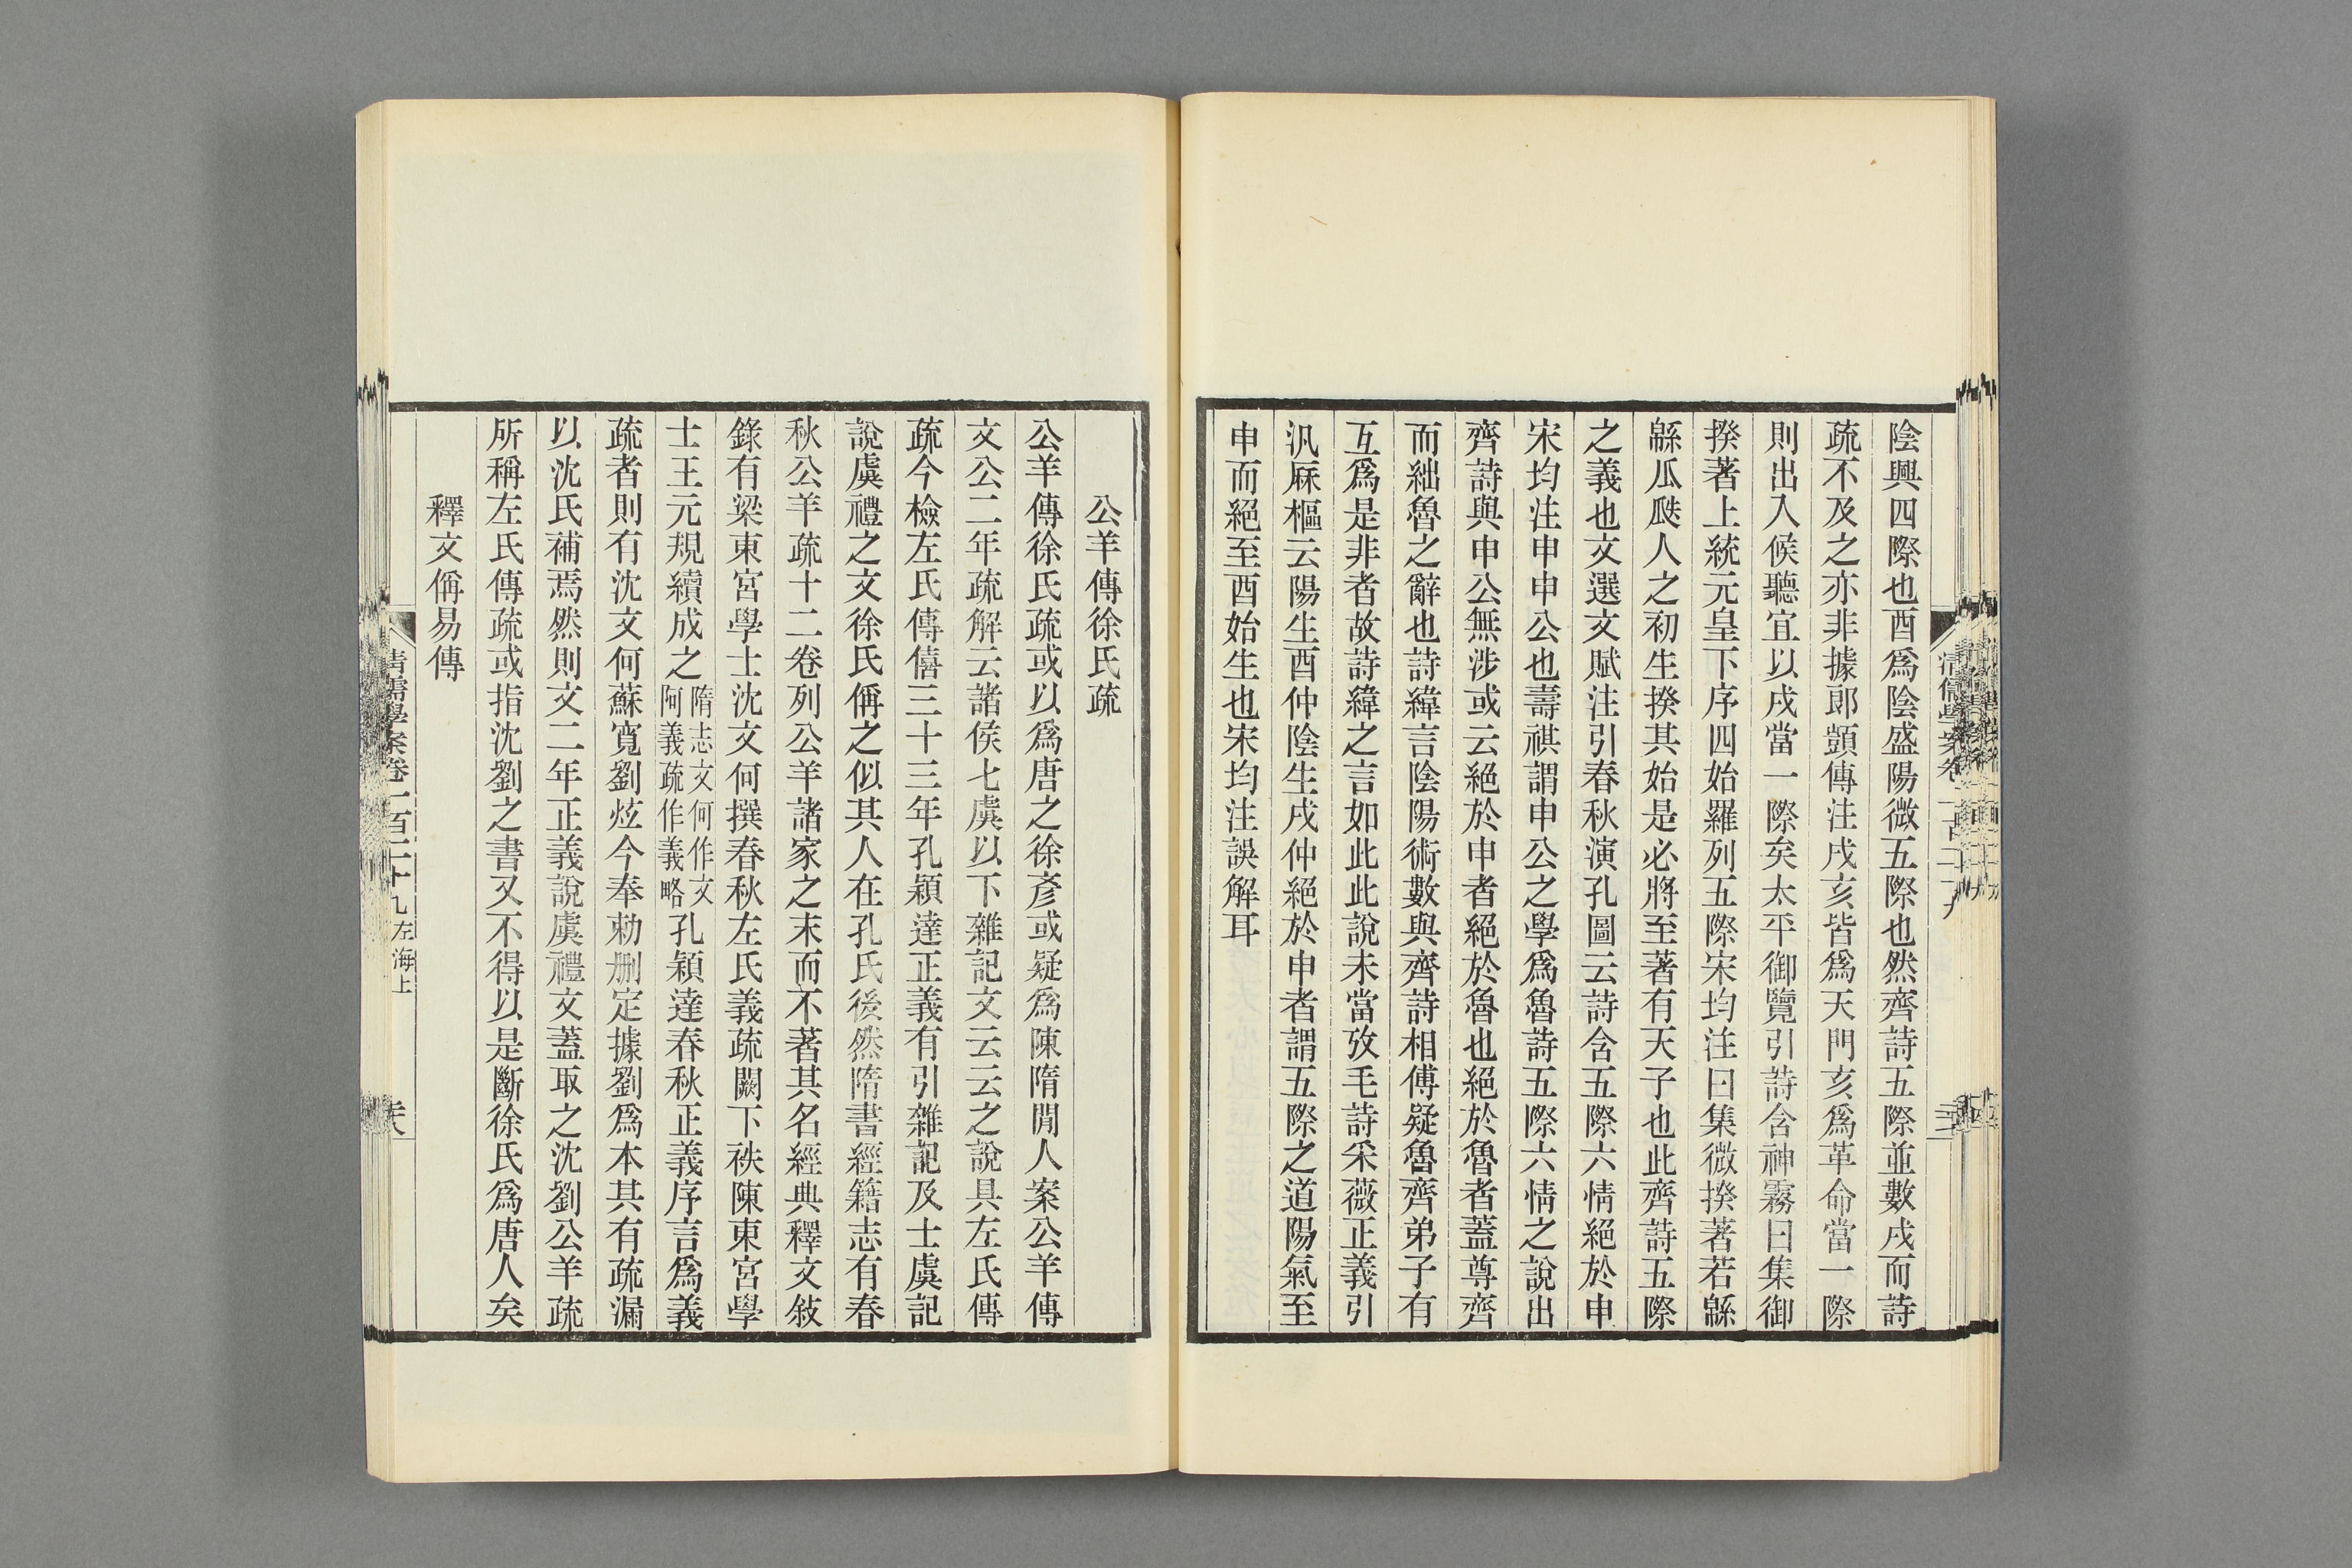 陰興四際也酉爲陰盛陽微五際也然齊詩五際並數戌而詩
疏不及之亦非據郎顗傳注戌亥皆爲天門亥爲革命當一際
則出入候聽宜以戌當一際矣太平御覽引詩含神霧曰集御
揆著上統元皇下序四始羅列五際宋均注曰集微揆著若緜
緜瓜瓞人之初生揆其始是必將至著有天子也此齊詩五際
之義也文選文賦注引春秋演孔圖云詩含五際六情絕於申
宋均注申申公也壽祺謂申公之學爲魯詩五際六情之說出
齊詩與申公無涉或云絕於申者絕於魯也絕於魯者蓋尊齊
而絀魯之辭也詩緯言陰陽術數與齊詩相傅疑魯齊弟子有
互爲是非者故詩緯之言如此此說未當攷毛詩采薇正義引
汎厤樞云陽生酉仲陰生戌仲絕於申者謂五際之道陽氣至
申而絕至酉始生也宋均注誤解耳
公羊傳徐氏疏
公羊傳徐氏疏或以爲唐之徐彥或疑爲陳隋閒人案公羊傳
文公二年疏解云諸侯七虞以下雜記文云云之說具左氏傳
疏今檢左氏傳僖三十三年孔穎達正義有引雜記及士虞記
說虞禮之文徐氏偁之似其人在孔氏後然隋書經籍志有春
秋公羊疏十二卷列公羊諸家之末而不著其名經典釋文敘
錄有梁東宮學士沈文何撰春秋左氏義疏闕下袟陳東宮學
士王元規續成之隋志文何作文阿義疏作義略孔穎達春秋正義序言爲義
疏者則有沈文何蘇寬劉炫今奉勅刪定據劉爲本其有疏漏
以沈氏補焉然則文二年正義說虞禮文蓋取之沈劉公羊疏
所稱左氏傳疏或指沈劉之書又不得以是斷徐氏爲唐人矣
釋文偁易傳
清儒學案卷一百二十九 左海上